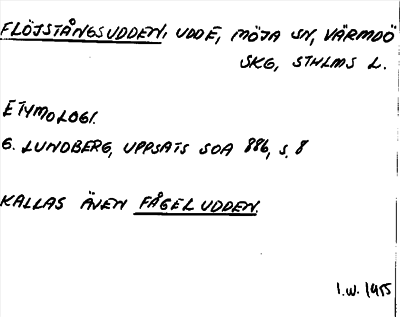 FLÖJSTÅNGSUDDEN, UDDE, MÖJA SN, VÄRMDÖ
SKG, STHLMS L.
ETYMOLOGI.
G. LUNDBERG, UPPSATS SOA 886, S. 8
KALLAS ÄVEN FÅGELUDDEN.
I.W. 1955